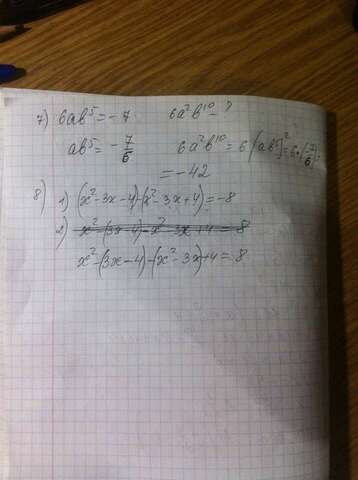 7) 6ab⁵ = -7 6a²b¹⁰ - ?
ab⁵ = -7/6 6a²b¹⁰ = 6(ab⁵)² = 6·(-7/6)
= -42
8) 1) (x² - 3x - 4) - (x² - 3x + 4) = -8
2) x² - (3x - 4) - x² - 3x + 4 = 8
x² - (3x - 4) - (x² - 3x) + 4 = 8